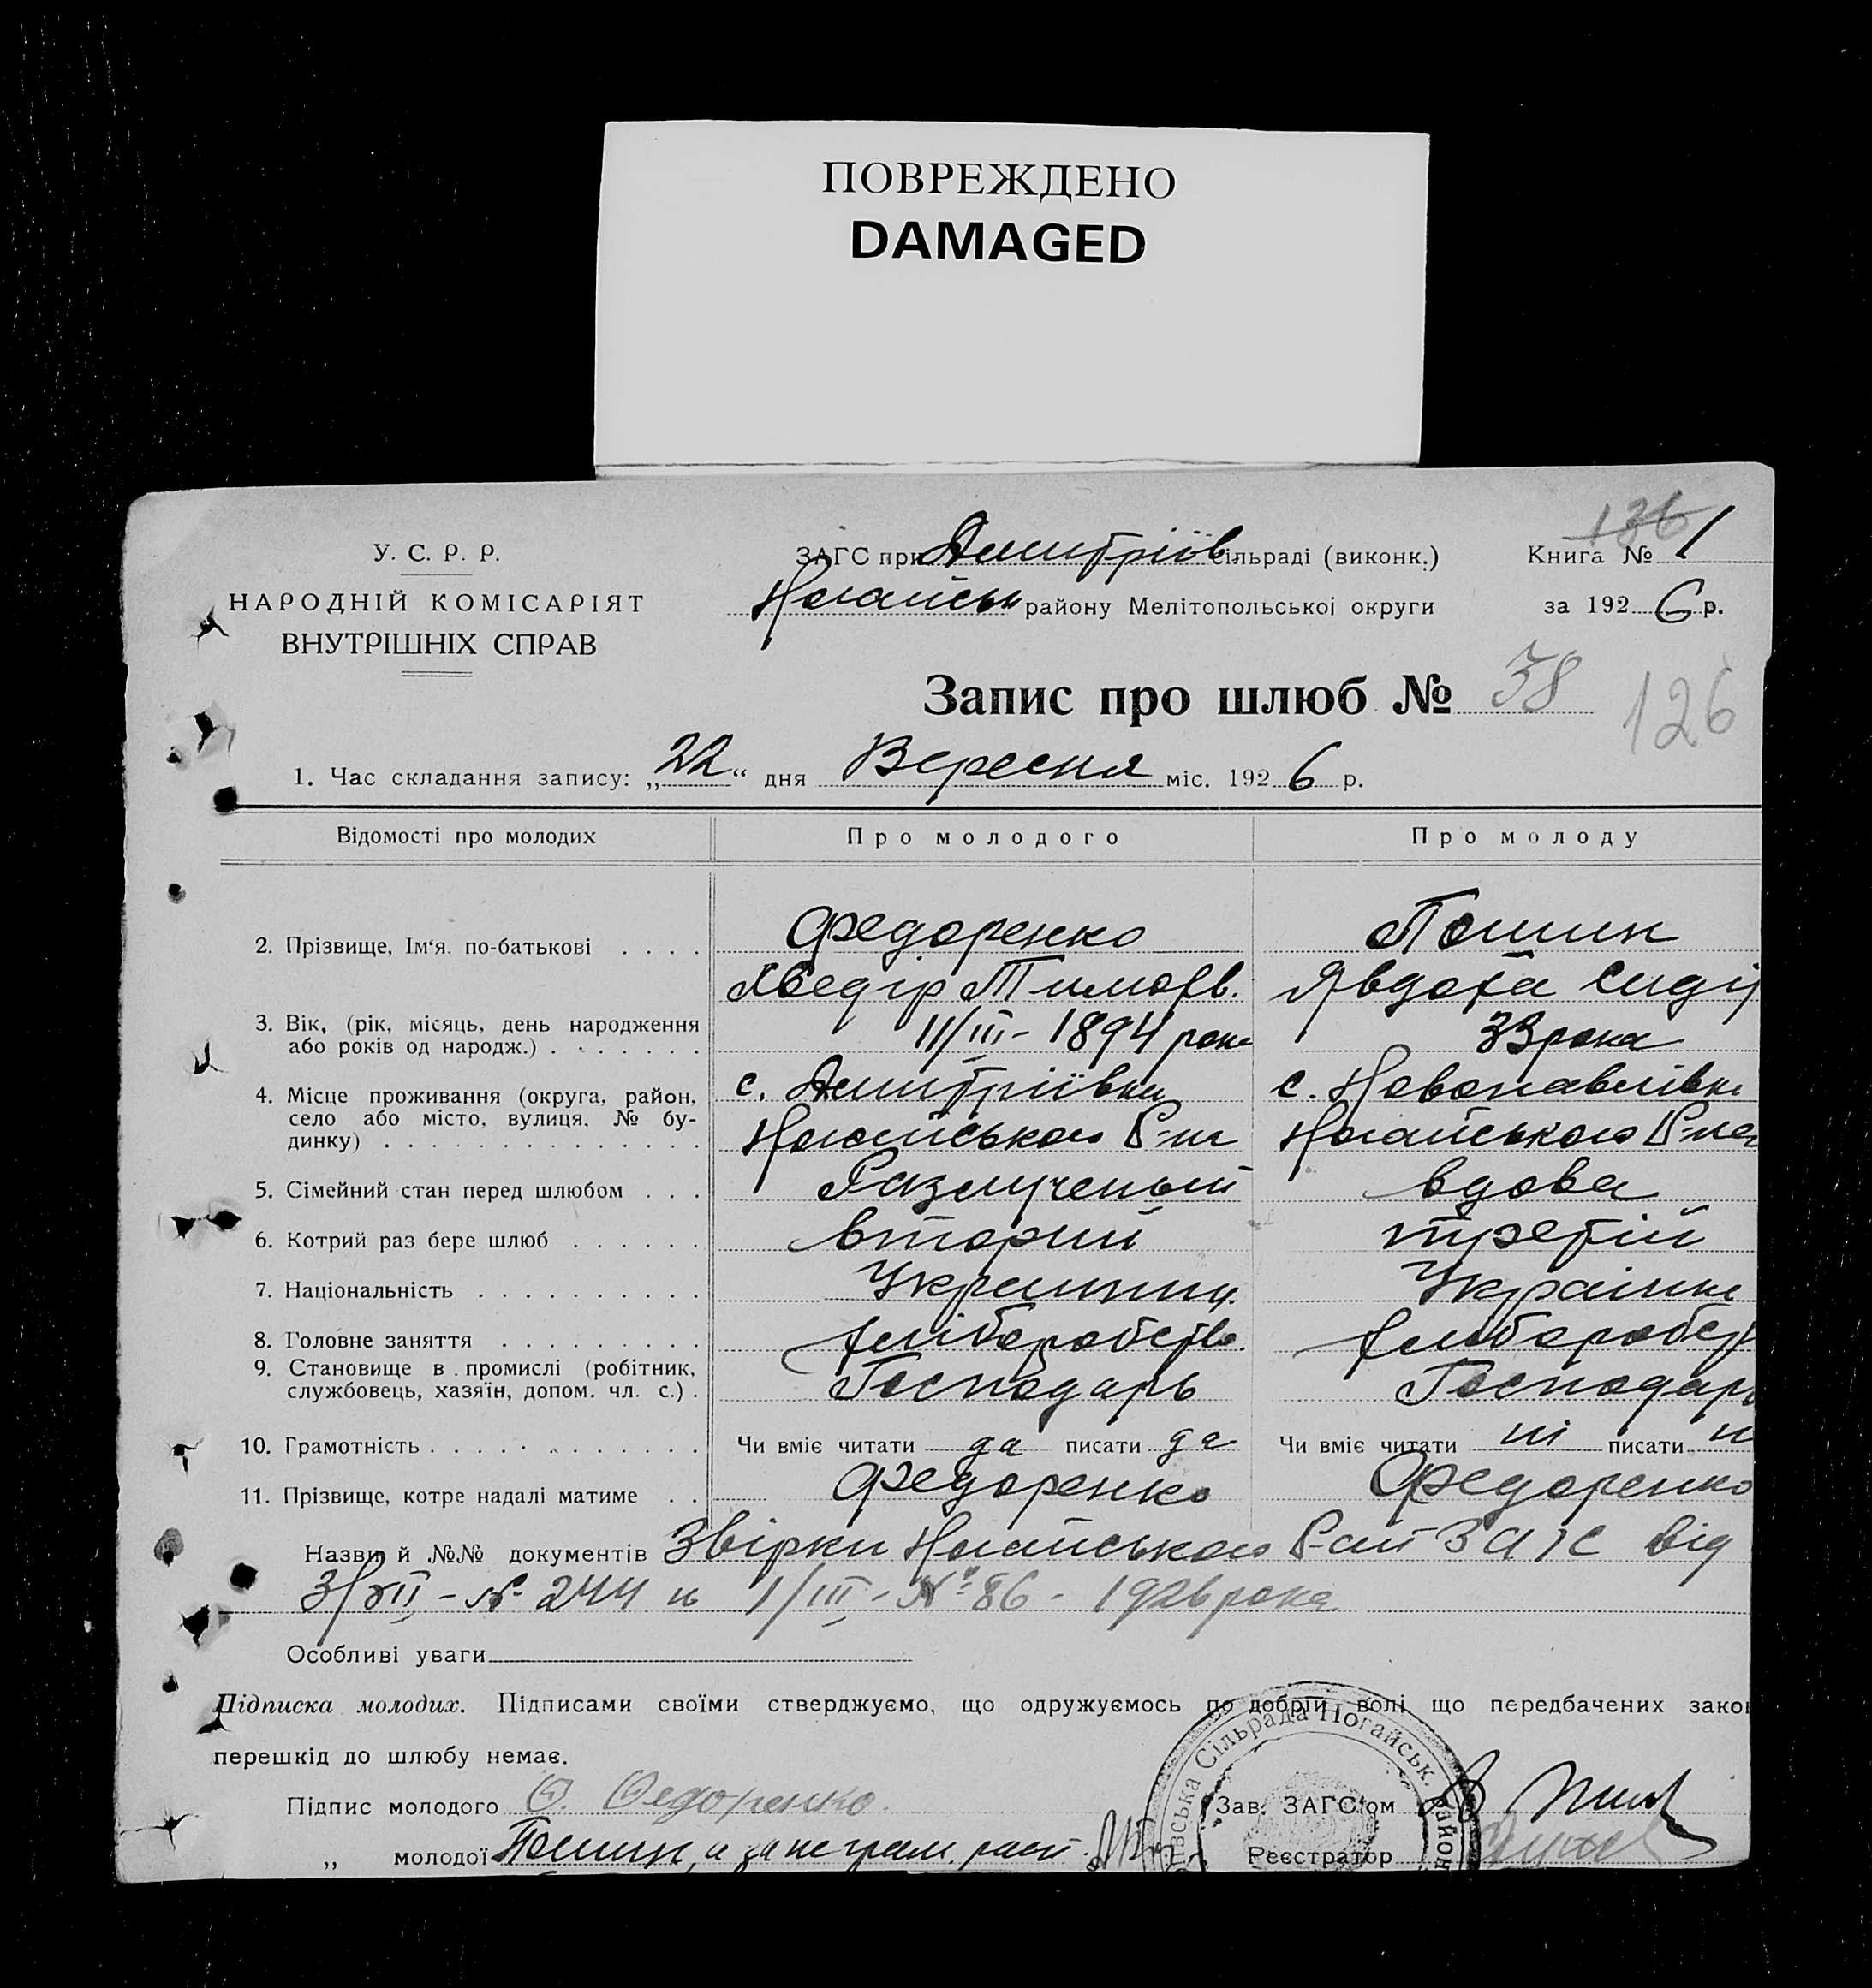 ПОВРЕЖДЕНО
DAMAGED
136
У. С. Р. Р.
НАРОДНІЙ КОМІСАРІЯТ
ВНУТРІШНІХ СПРАВ
ЗАГС при Дмитріїв. сільраді (виконк.)
Ногайськ району Мелітопольської округи
Книга № 1
за 1926 р.
Запис про шлюб № 38
126
1. Час складання запису: „22“ дня Вересня міс. 1926 р.
Відомості про молодих Про молодого Про молоду
2. Прізвище, Ім‘я. по-батькові . . . . Федоренко Пошин
Хведір Тимофв. Явдоха Сидір
3. Вік, (рік, місяць, день народження
або років од народж.) . . . . . . . 11/III - 1894 року 33 рока
4. Місце проживання (округа, район,
село або місто, вулиця, № бу-
динку) . . . . . . . . . . . . . .
с. Дмитріївки с. Новопавлівки
Ногайського Р-на Ногайського Р-на
5. Сімейний стан перед шлюбом . . . Разлученый вдова
6. Котрий раз бере шлюб . . . . . . вторий третій
7. Національність . . . . . . . . . . Украинец. Українка
8. Головне заняття . . . . . . . . . хліборобство. хлібороб
9. Становище в промислі (робітник,
службовець, хазяїн, допом. чл. с.) . Господарь Господарь
10. Грамотність . . . . . . . . . . . . Чи вміє читати да писати да Чи вміє читати ні писати н
11. Прізвище, котре надалі матиме . . Федоренко Федоренко
Назви й №№ документів Звірки Ногайського Рай ЗАГС від
3/VII - № 244 и 1/III - № 86 - 1926 рока
Особливі уваги
Підписка молодих. Підписами своїми стверджуємо, що одружуємось по добрій волі що передбачених закон
перешкід до шлюбу немає.
Підпис молодого Ф. Федоренко
„ молодої Пошин, а за неграм. расп.
Зав. ЗАГС‘ом
Реєстратор
івська Сільрада Ногайськ. район